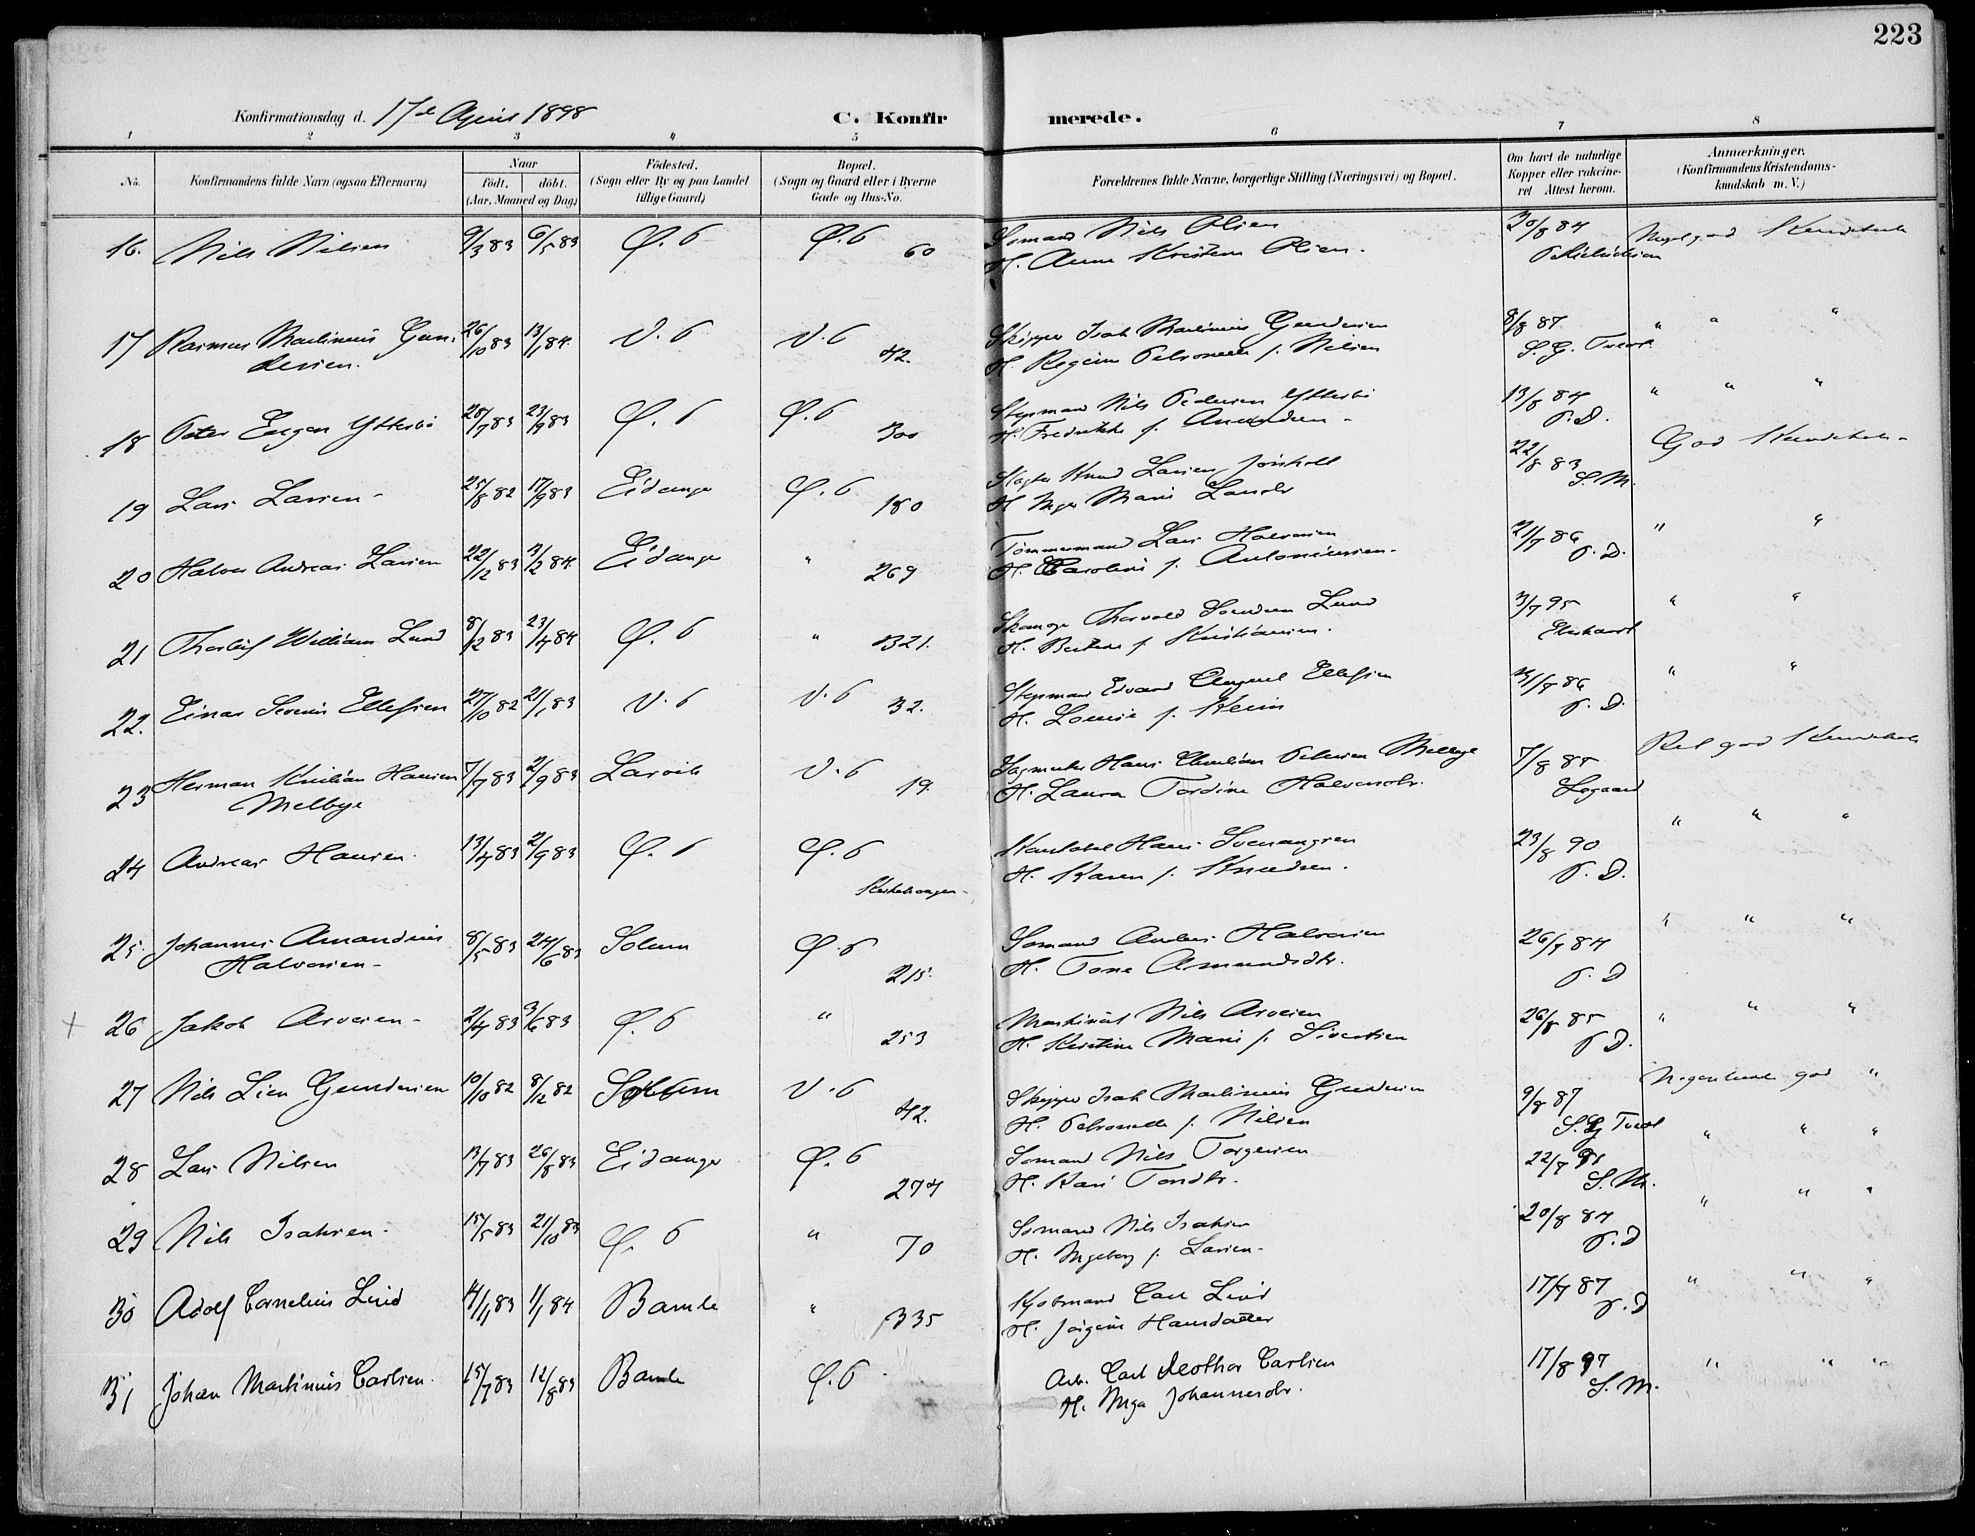 223
Konfirmationsdag d. 17de April 1898
C. Konfirmerede.
1 2 3 4 5 6 7 8
No. Konfirmandens fulde Navn (ogsaa Efternavn) Naar født, døbt. (Aar, Maaned og Dag) Fødested. (Sogn eller By og paa Landet tillige Gaard) Bopæl. (Sogn og Gaard eller i Byerne Gade og Hus-No. Forældrenes fulde Navne, borgerlige Stilling (Næringsvei) og Bopæl. Om havt de naturlige Kopper eller vakcineret Attest herom. Anmærkninger. (Konfirmandens Kristendomskundskab m.V.)
16. Nils Nilsen 9/3 83 6/5 83 Ø. B Ø. B 60 Sømand Nils Olsen 30/8 84 Meget god Kundskab
H. Anne Kristene Olsen.
17 Rasmus Martinius Gun- 26/10 83 13/1 84 V. B V. B 42. Skipper Isak Martinius Gundersen 8/8 87 " " "
dersen. H. Regine Petronelle f. Nilsen
18 Peter Eugen Ytterbø 28/7 83 23/9 83 Ø. B Ø. B 300 Styrmand Nils Pedersen Ytterbø 13/8 84 P.D. " " "
H. Fredrikke f. Amundsen
19 Lars Larsen 25/8 82 17/9 83 Eidanger Ø. B 180 Knud Larsen 22/8 83 S.M. God Kundskab
H. Inger Marie Larsdr
20 Halvor Andreas Larsen 22/12 83 3/2 84 Eidanger " 269 Tømmermand Lars Halvorsen 21/7 86 P.D. " "
H. Caroline f. Antoniusen.
21 Thorleif William Lund 8/12 83 23/4 84 Ø. B " 321. Thorvald Lund 3/7 95 " "
H. f. Kristiansen.
22. Einar Severin Ellefsen 27/10 82 21/1 83 V. B V. B 32. Styrmand Edvard Ellefsen 31/7 86 P.D. " "
H. Lovise f. Klein
23 Herman Kristian Hansen 7/7 83 2/9 83 Larvik V. B 19. Hans Christian Petersen Melbye 7/8 85 Ret god Kundskab
Melbye H. Laura Tordine Halvorsdr.
24 Andreas Hansen. 13/4 83 2/9 83 Ø. B Ø. B Hans Svenungsen 23/8 90 P.D. " " "
H. Karen f. Knudsen.
25. Johannes Amandius 8/5 83 24/6 83 Solum Ø. B 215. Sømand Anders Halvorsen 26/7 84 P.D " " "
Halvorsen H. Tone Amundsdr.
+ 26 Jakob Arvesen 2/4 83 3/6 83 Ø. B " 253 Maskinist Nils Arvesen 26/8 85 P.D. " " "
H. Kristine Marie f. Sivertsen
27 Nils Lien Gundersen 10/10 82 8/12 82 Solum V. B 42. Skipper Isak Martinius Gundersen 9/8 87 Nogenlunde god "
H. Petronelle f. Nilsen
28 Lars Nilsen 13/7 83 26/8 83 Eidanger Ø. B 274 Sømand Nils Torgersen 22/7 S.M. " " "
H. Kari Torsdtr.
29 Nils Isaksen 15/5 83 21/10 83 Ø. B " 70 Sømand Nils Isaksen 20/8 84 P.D " " "
H. Ingeborg f. Larsen
30 Adolf Cornelius Lind 14/11 83 1/1 84 Bamle " 335 Kjøbmand Carl Lind 17/7 87 P.D " " "
H. Jørgine Hansdatter
31 Johan Martinius Carlsen. 15/7 83 12/8 83 Bamle Ø. B Arb. Carl Carlsen 17/8 97 S.M. " " "
H. Inga Johannesdr.